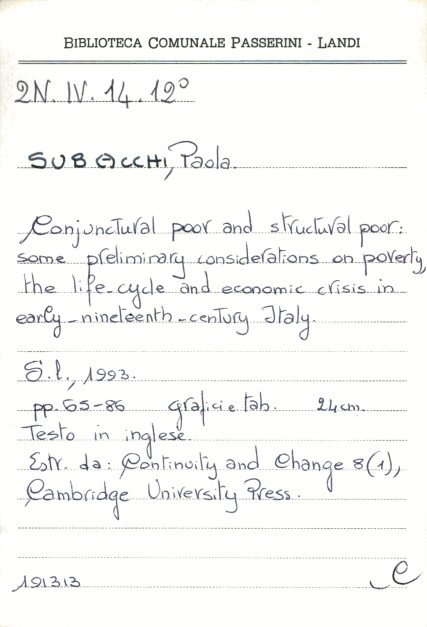 BIBLIOTECA COMUNALE PASSERINI - LANDI
2N. IV. 14. 12°
SUBACCHI, Paola.
Conjunctural poor and structural poor:
some preliminary considerations on poverty,
the life-cycle and economic crisis in
early-nineteenth-century Italy.
S.l., 1993.
pp. 65-86 grafici e tab. 24 cm.
Testo in inglese.
Estr. da: Continuity and Change 8(1),
Cambridge University Press.
191313 C